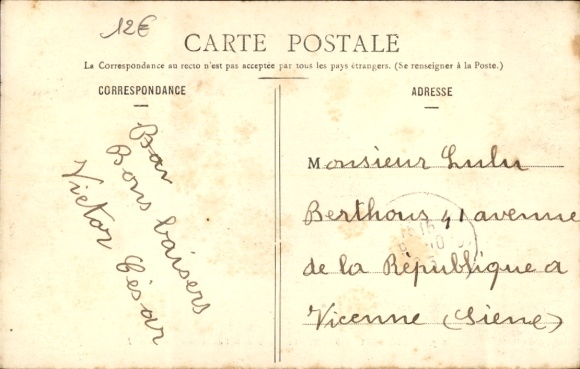 12€
CARTE POSTALE
La Correspondance au recto n'est pas acceptée par tous les pays étrangers. (Se renseigner à la Poste.)
CORRESPONDANCE
Bons baisers
Victor César
ADRESSE
Monsieur Lulu
Berthous 41 avenue
de la République a
Vicenne (Siene)